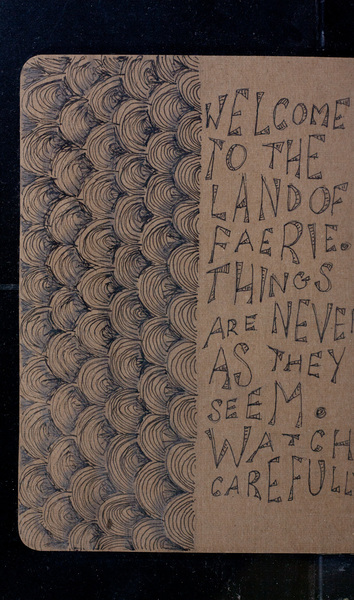 WELCOME
TO THE
LAND OF
FAERIE.
THINGS
ARE NEVE
AS THEY
SEEM.
WATCH
CAREFULL